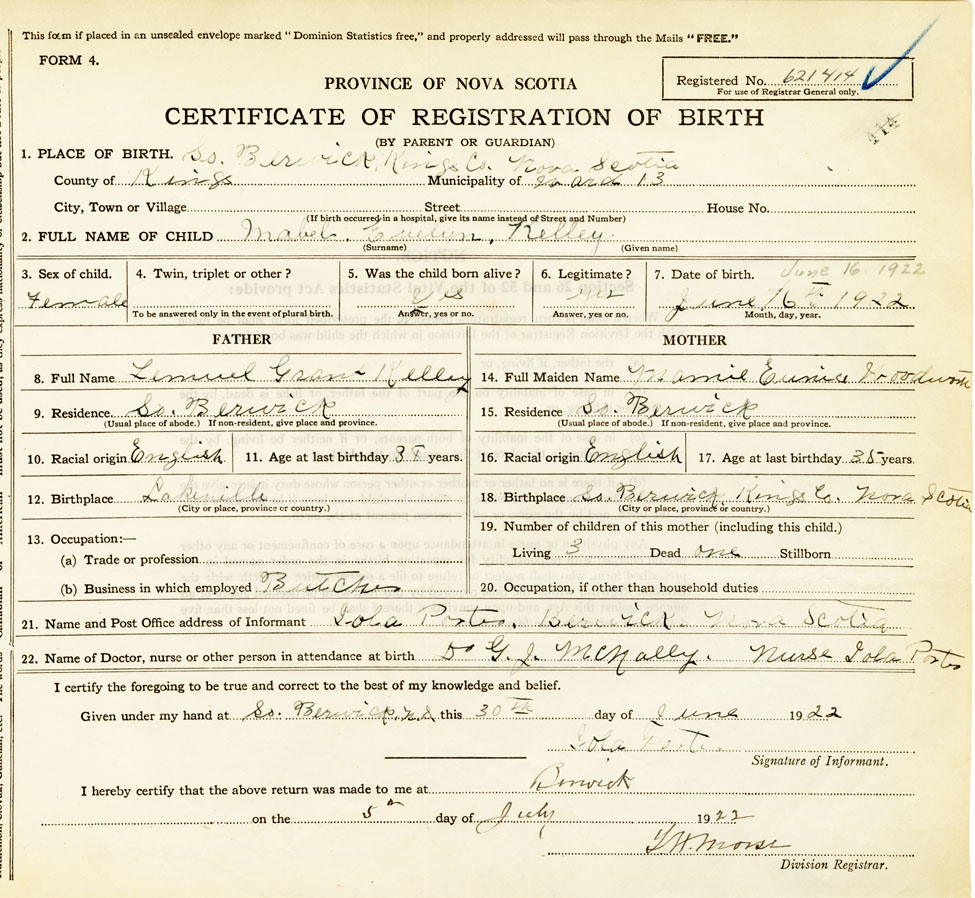 This form if placed in an unsealed envelope marked "Dominion Statistics free," and properly addressed will pass through the Mails "FREE."
FORM 4.
Registered No. 621414
For use of Registrar General only.
PROVINCE OF NOVA SCOTIA
CERTIFICATE OF REGISTRATION OF BIRTH
414
(BY PARENT OR GUARDIAN)
1. PLACE OF BIRTH. So. Berwick, Kings Co. Nova Scotia
County of Kings Municipality of Ward 13
City, Town or Village Street House No.
(If birth occurred in a hospital, give its name instead of Street and Number)
2. FULL NAME OF CHILD Mabel. Evelyn, Kelley.
(Surname) (Given name)
3. Sex of child. 4. Twin, triplet or other? 5. Was the child born alive? 6. Legitimate? 7. Date of birth. June 16. 1922
Female Yes Yes June 16th 1922
To be answered only in the event of plural birth. Answer, yes or no. Answer, yes or no. Month, day, year.
FATHER MOTHER
8. Full Name Lemuel Grant Kelley 14. Full Maiden Name Mamie Eunice Woodworth
9. Residence. So. Berwick 15. Residence So. Berwick
(Usual place of abode.) If non-resident, give place and province. (Usual place of abode.) If non-resident, give place and province.
10. Racial origin English 11. Age at last birthday years. 16. Racial origin English 17. Age at last birthday 35 years.
12. Birthplace Lakeville 18. Birthplace So. Berwick, Kings Co. Nova Scotia
(City or place, province or country.) (City or place, province or country.)
13. Occupation:— 19. Number of children of this mother (including this child.)
(a) Trade or profession Living 3 Dead one Stillborn
(b) Business in which employed Butcher 20. Occupation, if other than household duties
21. Name and Post Office address of Informant Iola Porter. Berwick. Nova Scotia
22. Name of Doctor, nurse or other person in attendance at birth Dr G. J. McNally. Nurse Iola Porter
I certify the foregoing to be true and correct to the best of my knowledge and belief.
Given under my hand at So. Berwick, N.S. this 30th day of June 1922
Iola Porter
Signature of Informant.
I hereby certify that the above return was made to me at Berwick
on the 5th day of July 1922
Morse
Division Registrar.